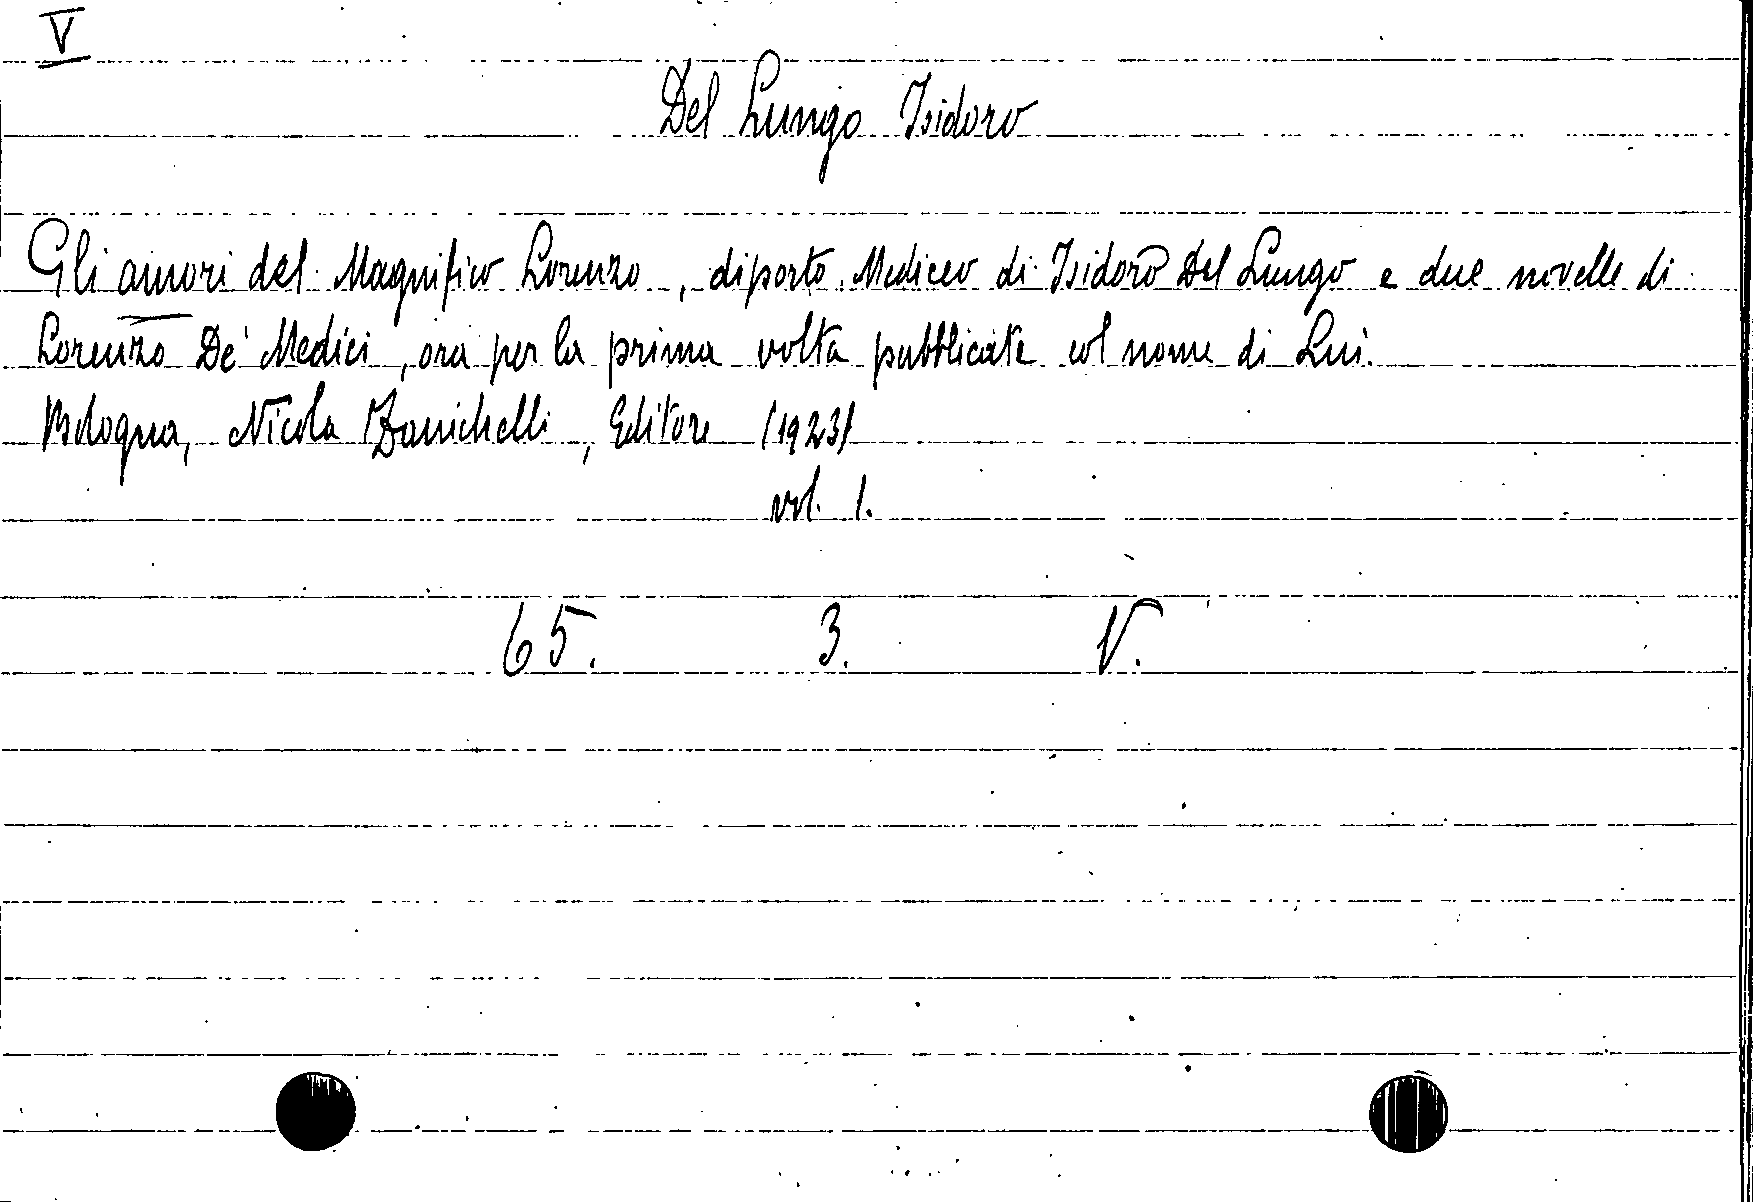 V
Del Lungo Isidoro
Gli amori del Magnifico Lorenzo, diporto Mediceo di Isidoro Del Lungo e due novelle di
Lorenzo De' Medici, ora per la prima volta pubblicate col nome di Lui.
Bologna, Nicola Zanichelli, Editore (1923)
vol. 1.
65. 3. V.